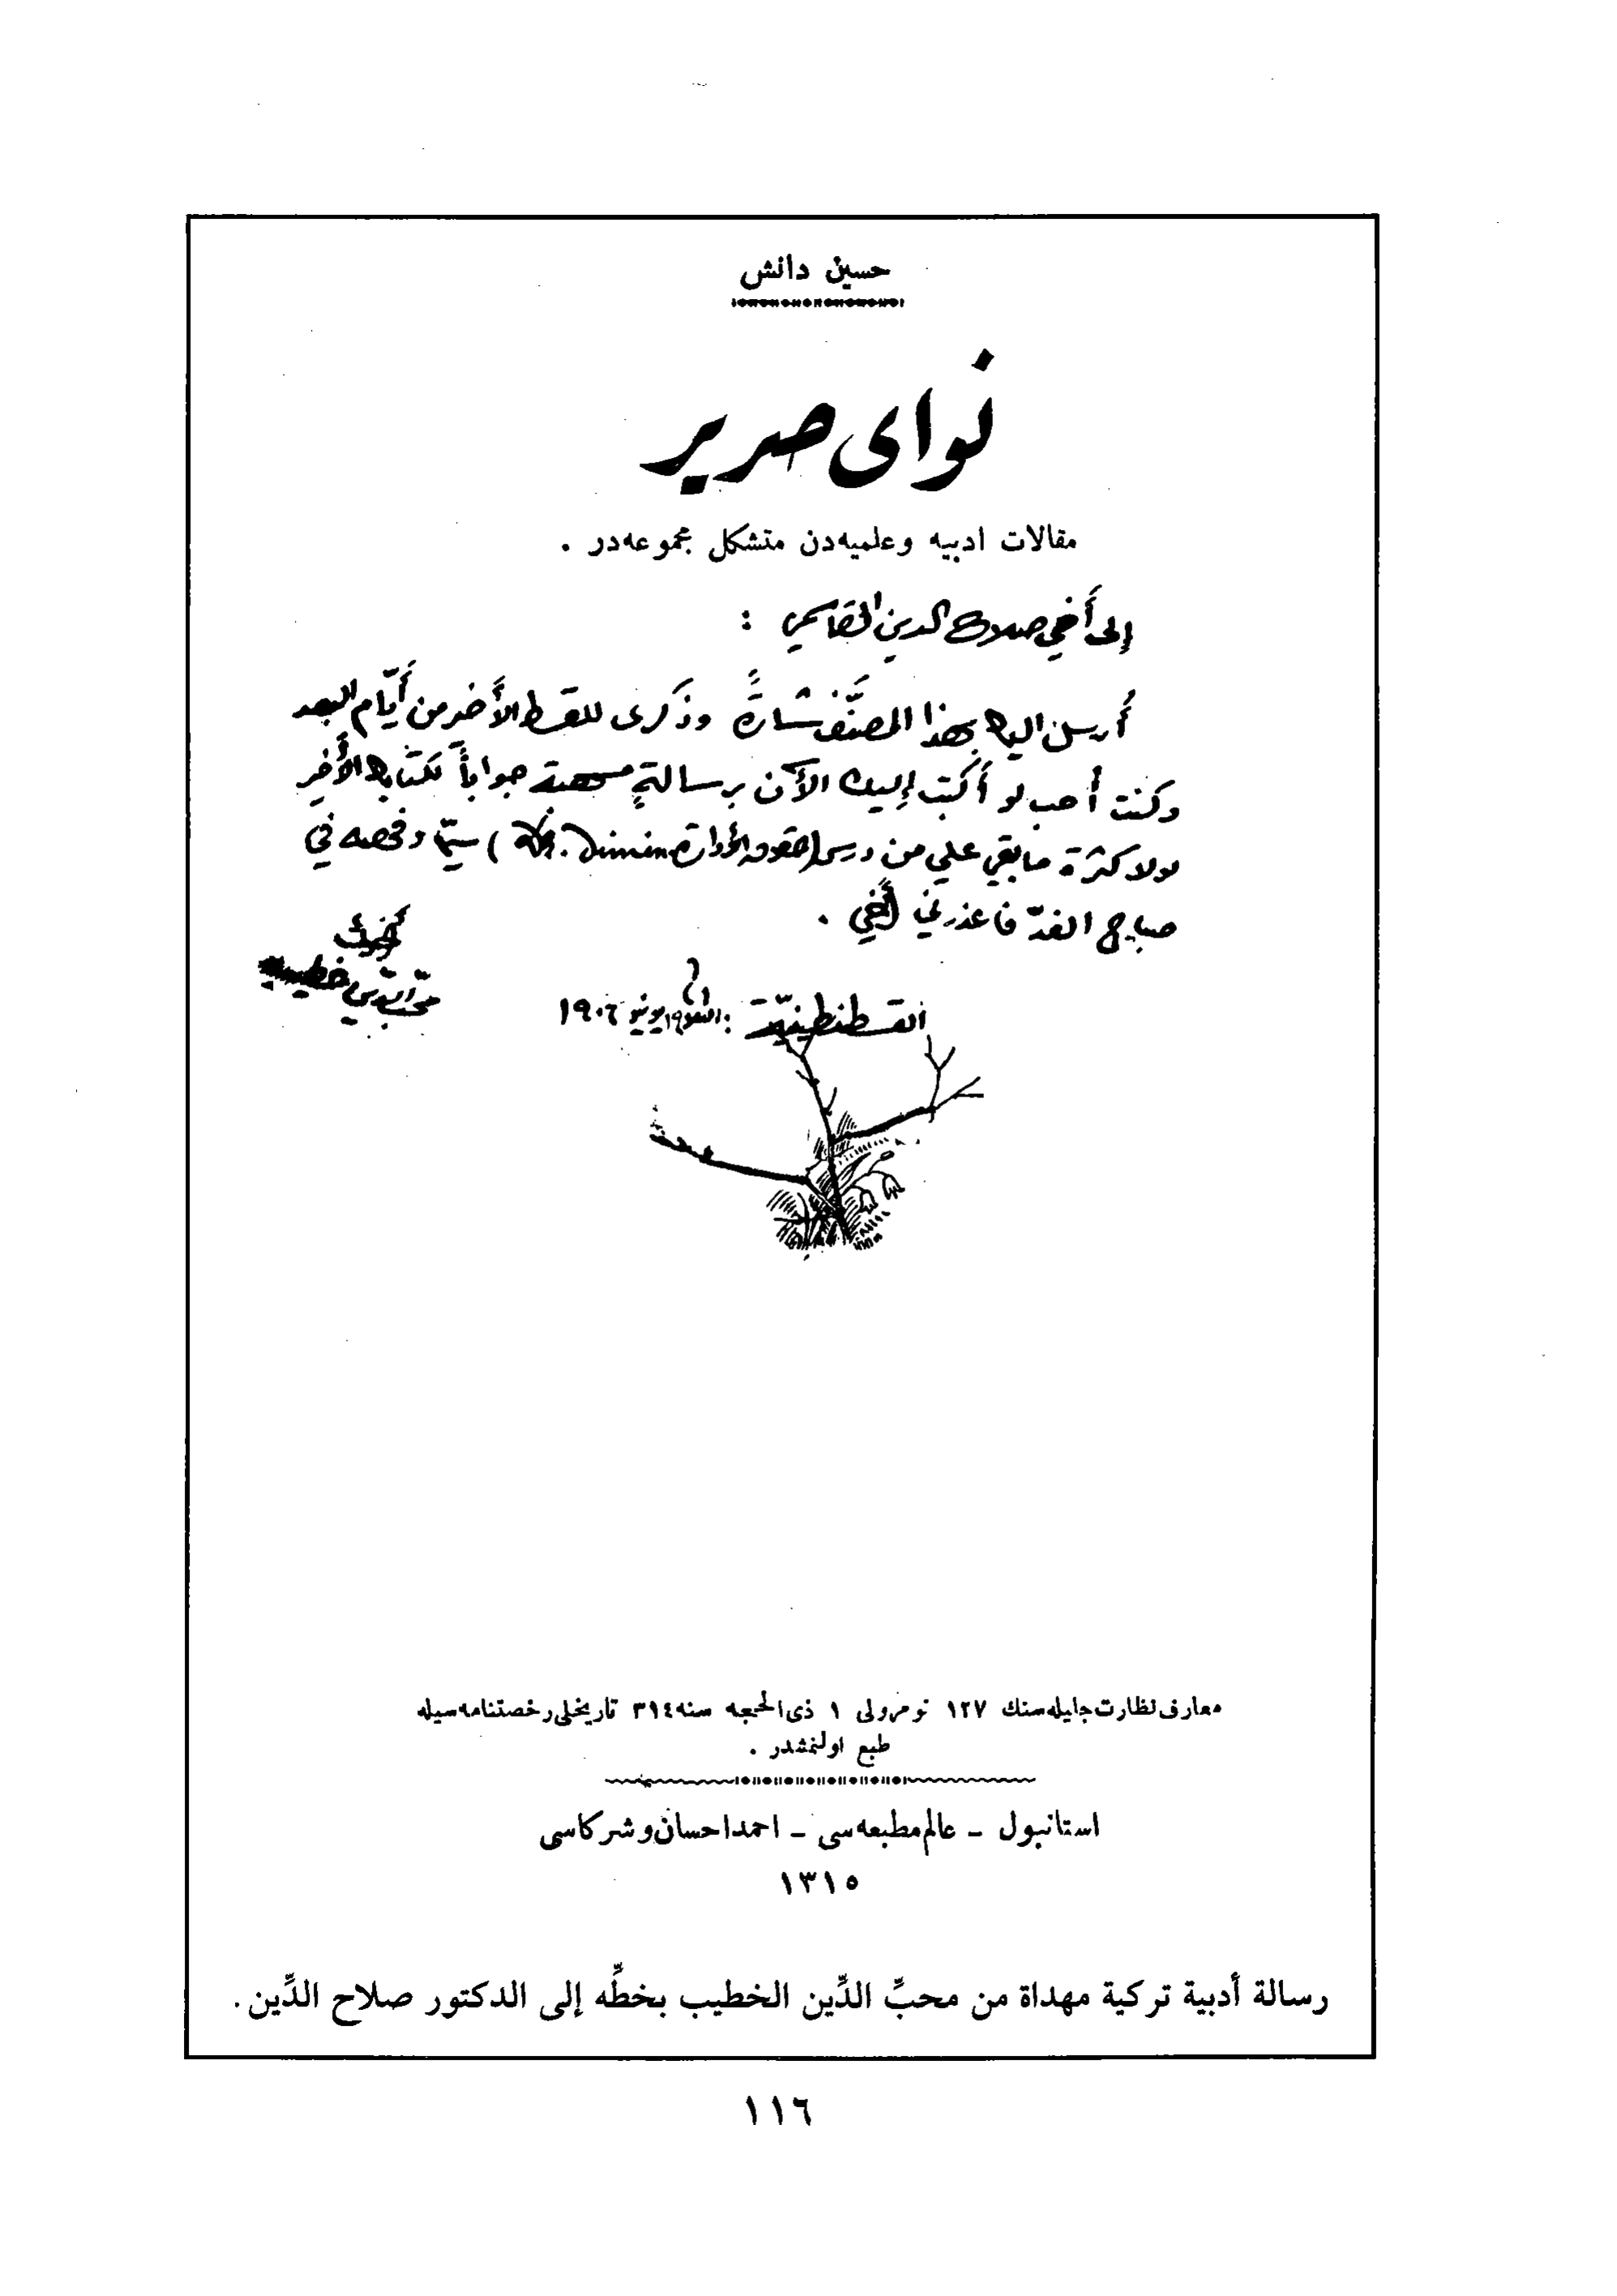 حسين دانش
نواى صرير
مقالات ادبيه وعلميه‌دن متشكل مجموعه‌در .
إلى أخي صلاح الدين القاسمي :
أرسل اليك بهذا المصنَّف بشارةً وذكرى للقسط الأخير من أيّام البعد
وكنت أحب لو أكتب إليك الآن برسالةٍ جواباً لكتابك الأخير
لولا كثرة ما بقي علي من درس (حقوق الإدارة) سيّما وفحصه في
صباح الغدّ فاعذرني أُخيَّ .
أخوك
محبّ الدّين خطيب
القسطنطينيّة : ١٩ يونيو ١٩٠٦
معارف نظارت جليله‌سنك ١٢٧ نومرولى ١ ذى الحجه سنه ٣١٤ تاريخلى رخصتنامه‌سيله
طبع اولنمشدر .
استانبول ـ عالم مطبعه‌سى ـ احمد احسان و شركاسى
١٣١٥
رسالة أدبية تركية مهداة من محبِّ الدِّين الخطيب بخطِّه إلى الدكتور صلاح الدِّين.
١١٦